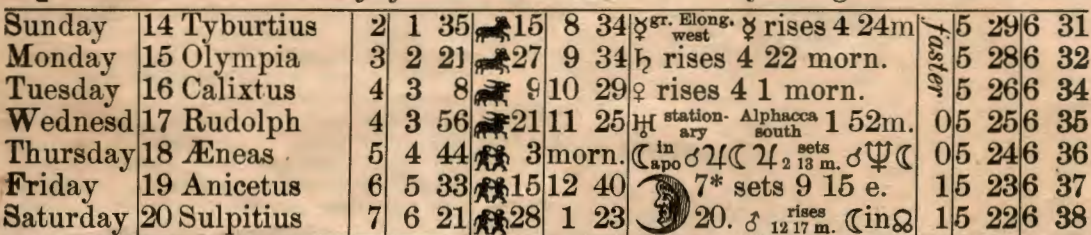 Sunday 14 Tyburtius 2 1 35 15 8 34 ☿ gr. Elong. west ☿ rises 4 24m faster 5 29 6 31
Monday 15 Olympia 3 2 21 27 9 34 ♄ rises 4 22 morn. 5 28 6 32
Tuesday 16 Calixtus 4 3 8 9 10 29 ♀ rises 4 1 morn. 5 26 6 34
Wednesd 17 Rudolph 4 3 56 21 11 25 ♅ stationary Alphacca south 1 52m. 0 5 25 6 35
Thursday 18 Æneas 5 4 44 3 morn. ☾ in apo ☌♃☾ ♃ sets 2 13 m. ☌♆☾ 0 5 24 6 36
Friday 19 Anicetus 6 5 33 15 12 40 7* sets 9 15 e. 1 5 23 6 37
Saturday 20 Sulpitius 7 6 21 28 1 23 20. ♂ rises 12 17 m. ☾ in ☊ 1 5 22 6 38